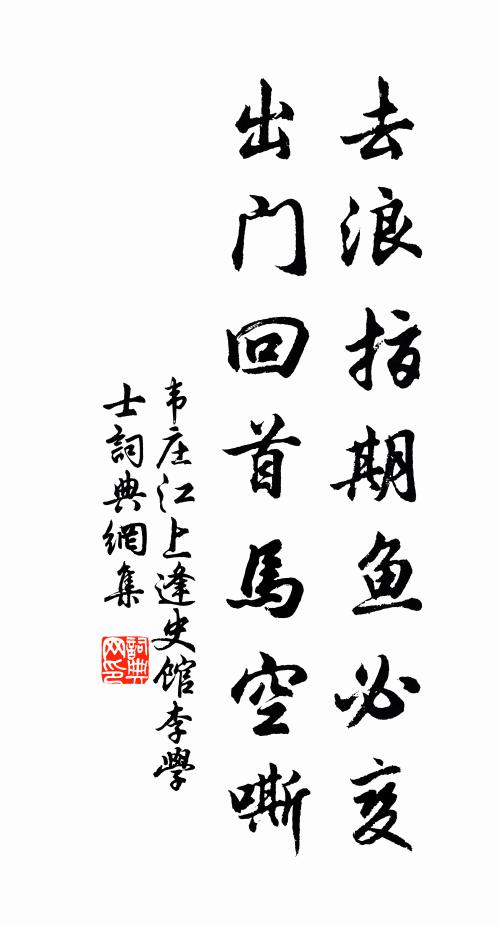 去浪指期鱼必变
出门回首馬空嘶
韦庄江上逢史馆李學
士詞典網集
詞典
网印